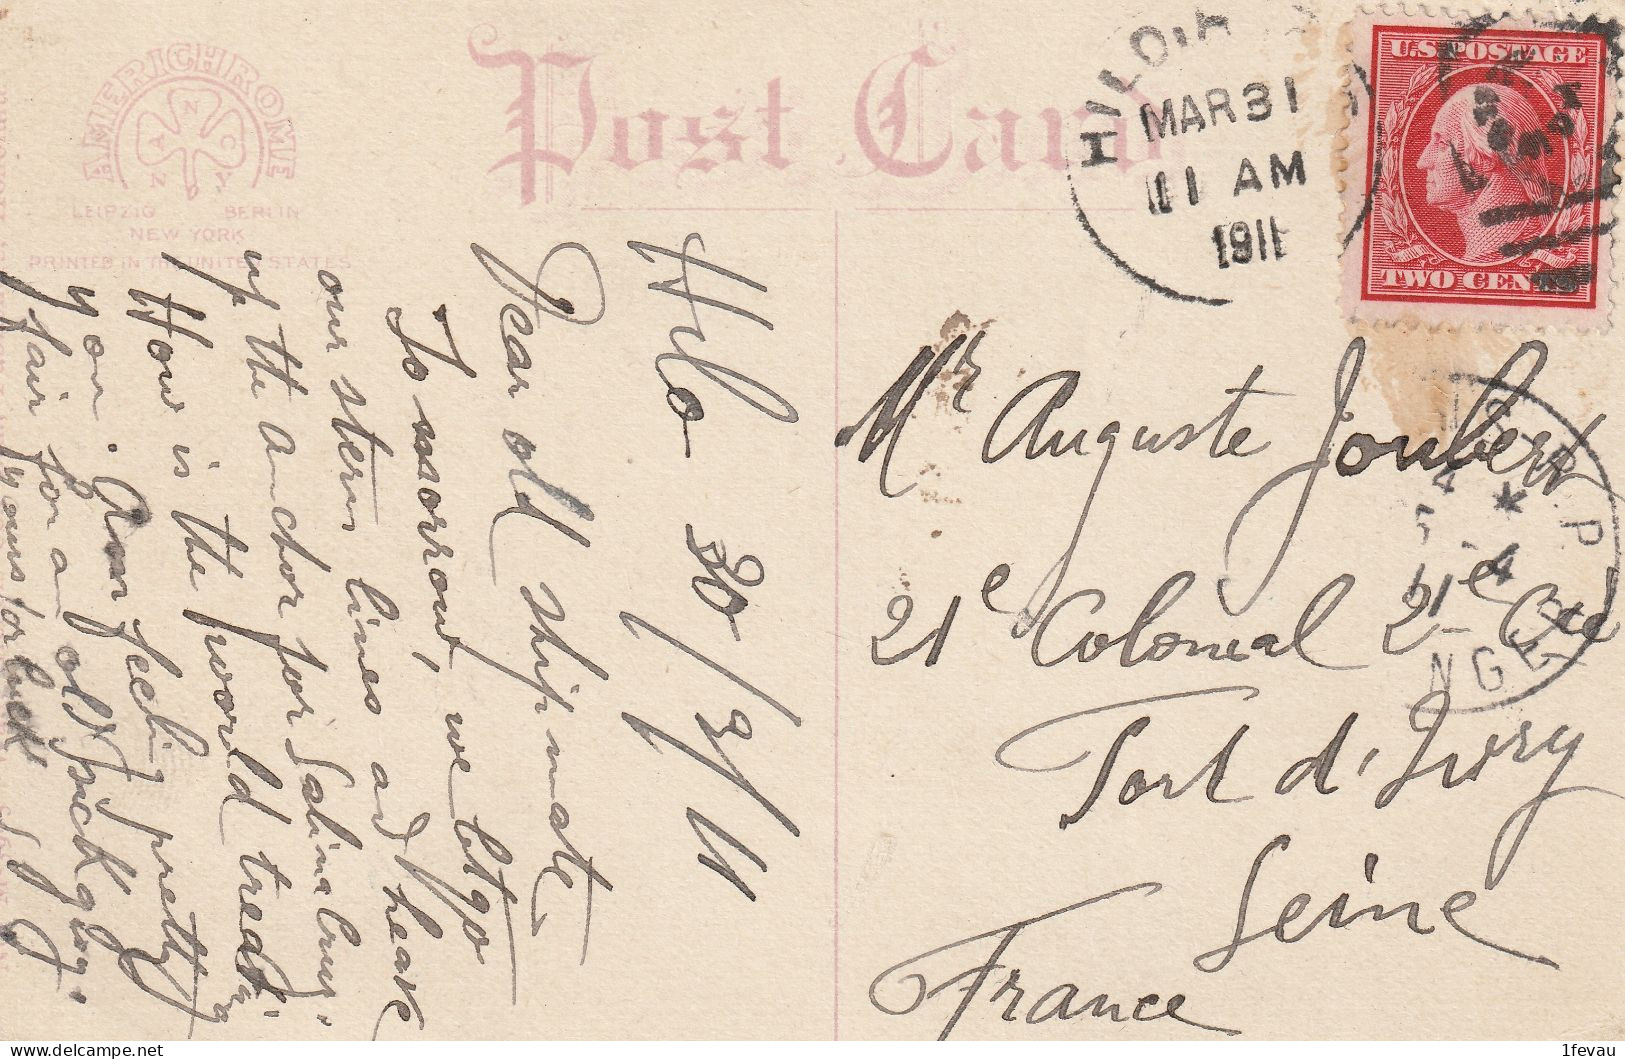 AMERICHROME
N
A C
N Y
Z
LEIPZIG BERLIN
NEW YORK
PRINTED IN THE UNITED STATES
Post Card
HILO, H
MAR 31
11 AM
1911
U.S. POSTAGE
TWO CENTS
Hilo 30/3/11
Dear old shipmate,
To morrow, we let go
our stern lines and heave
up the anchor for Salina Cruz.
How is the world treating
you. Am feeling pretty
fair for a old sick guy.
yours for luck
Mr Auguste Joubert
21e Colonial 2e Cie
Fort d'Ivry
Seine
France
1fevau
delcampe.net